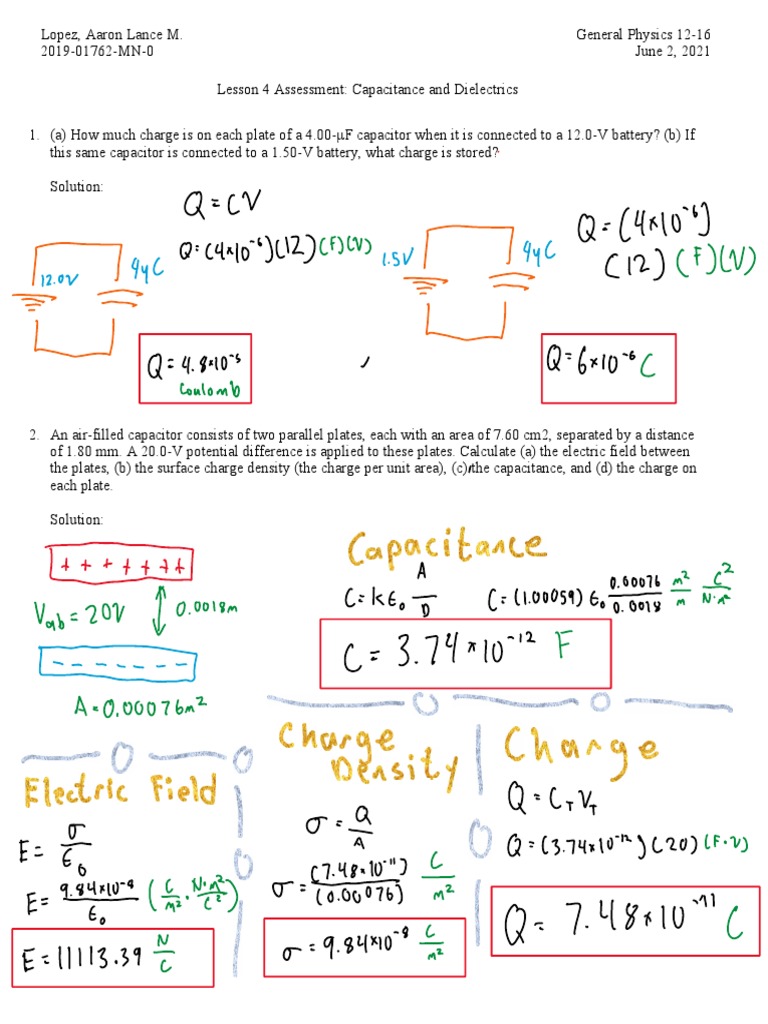 Lopez, Aaron Lance M.
General Physics 12-16
2019-01762-MN-0
June 2, 2021
Lesson 4 Assessment: Capacitance and Dielectrics
1. (a) How much charge is on each plate of a 4.00-μF capacitor when it is connected to a 12.0-V battery? (b) If
this same capacitor is connected to a 1.50-V battery, what charge is stored?
Solution:
Q = CV
Q = (4×10⁻⁶)(12)(F)(V)
12.0V
4μC
Q = 4.8×10⁻⁵
Coulomb
,
1.5V
4μC
Q = (4×10⁻⁶)
(12)(F)(V)
Q = 6×10⁻⁶ C
2. An air-filled capacitor consists of two parallel plates, each with an area of 7.60 cm2, separated by a distance
of 1.80 mm. A 20.0-V potential difference is applied to these plates. Calculate (a) the electric field between
the plates, (b) the surface charge density (the charge per unit area), (c) the capacitance, and (d) the charge on
each plate.
Solution:
+ + + + + + +
Vab = 20V
0.0018m
- - - - - - -
A = 0.00076m²
Capacitance
C = kε₀ A/D
C = (1.00059) ε₀ 0.00076/0.0018 m²/m C²/N·m²
C = 3.74×10⁻¹² F
Electric Field
E = σ/ε₀
E = 9.84×10⁻⁸/ε₀ (C/m² · N·m²/C²)
E = 11113.39 N/C
Charge
Density
σ = Q/A
σ = (7.48×10⁻¹¹)/(0.00076) C/m²
σ = 9.84×10⁻⁸ C/m²
Charge
Q = C_T V_T
Q = (3.74×10⁻¹²)(20)(F·V)
Q = 7.48×10⁻¹¹ C